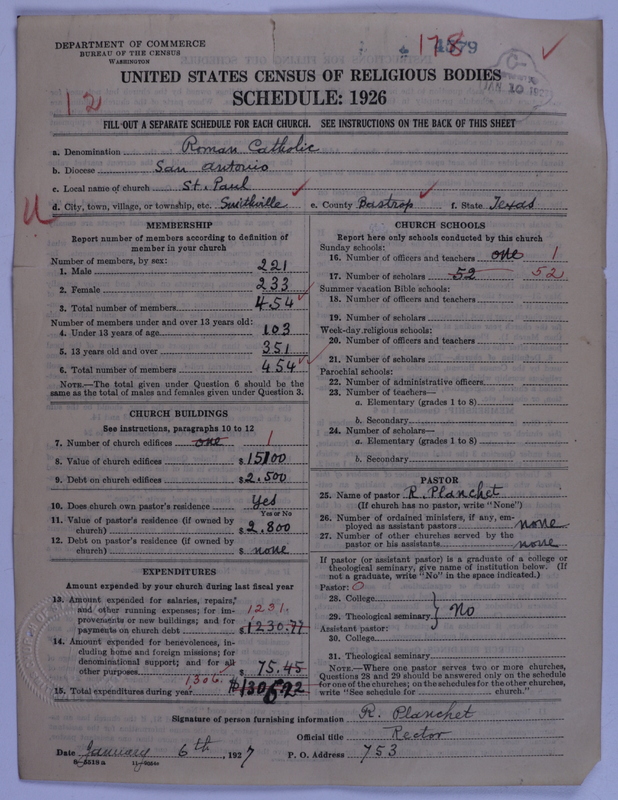 DEPARTMENT OF COMMERCE
BUREAU OF THE CENSUS
WASHINGTON
178
4579
JAN 10 1927
12
UNITED STATES CENSUS OF RELIGIOUS BODIES
SCHEDULE: 1926
FILL OUT A SEPARATE SCHEDULE FOR EACH CHURCH. SEE INSTRUCTIONS ON THE BACK OF THIS SHEET
a. Denomination Roman Catholic
b. Diocese San Antonio
c. Local name of church St. Paul
d. City, town, village, or township, etc. Smithville e. County Bastrop f. State Texas
MEMBERSHIP
Report number of members according to definition of
member in your church
Number of members, by sex:
1. Male 221
2. Female 233
3. Total number of members 454
Number of members under and over 13 years old:
4. Under 13 years of age 103
5. 13 years old and over 351
6. Total number of members 454
NOTE.—The total given under Question 6 should be the
same as the total of males and females given under Question 3.
CHURCH BUILDINGS
See instructions, paragraphs 10 to 12
7. Number of church edifices one 1
8. Value of church edifices $15100
9. Debt on church edifices $2.500
10. Does church own pastor's residence Yes
Yes or No
11. Value of pastor's residence (if owned by
church) $2.800
12. Debt on pastor's residence (if owned by
church) $ none
EXPENDITURES
Amount expended by your church during last fiscal year
13. Amount expended for salaries, repairs,
and other running expenses; for im- 1231.
provements or new buildings; and for
payments on church debt $1230.77
14. Amount expended for benevolences, in-
cluding home and foreign missions; for
denominational support; and for all
other purposes $ 75.45
1306.
15. Total expenditures during year $1306.22
CHURCH SCHOOLS
Report here only schools conducted by this church
Sunday schools:
16. Number of officers and teachers one 1
17. Number of scholars 52 52
Summer vacation Bible schools:
18. Number of officers and teachers
19. Number of scholars
Week-day religious schools:
20. Number of officers and teachers
21. Number of scholars
Parochial schools:
22. Number of administrative officers
23. Number of teachers—
a. Elementary (grades 1 to 8)
b. Secondary
24. Number of scholars—
a. Elementary (grades 1 to 8)
b. Secondary
PASTOR
25. Name of pastor R. Planchet
(If church has no pastor, write "None")
26. Number of ordained ministers, if any, em-
ployed as assistant pastors none
27. Number of other churches served by the
pastor or his assistants none
If pastor (or assistant pastor) is a graduate of a college or
theological seminary, give name of institution below. (If
not a graduate, write "No" in the space indicated.)
Pastor: O
28. College
29. Theological seminary No
Assistant pastor:
30. College
31. Theological seminary
NOTE.—Where one pastor serves two or more churches,
Questions 28 and 29 should be answered only on the schedule
for one of the churches; on the schedules for the other churches,
write "See schedule for church."
Signature of person furnishing information R. Planchet
Official title Rector
Date January 6th, 1927 P. O. Address 753